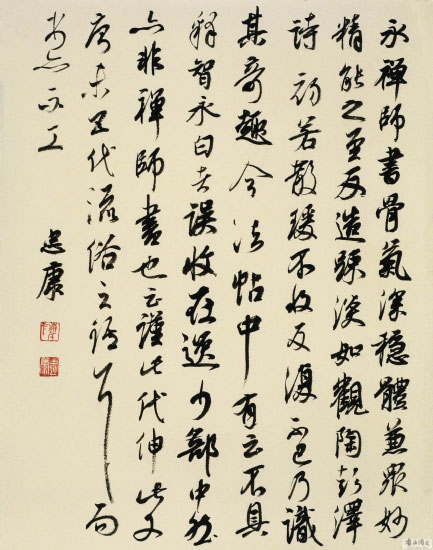 永禪師書骨氣深穩體兼眾妙
精能之至反造疎淡如觀陶彭澤
詩初若散緩不收反復不已乃識
其奇趣今法帖中有云不具
釋智永白者誤收在逸少部中然
亦非禪師書也云謹此代伸此乃
唐末五代流俗之語耳而
書亦不工
康